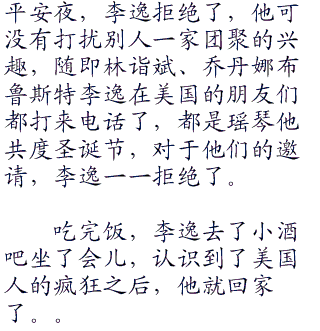 平安夜，李逸拒绝了，他可
没有打扰别人一家团聚的兴
趣，随即林诣斌、乔丹娜布
鲁斯特李逸在美国的朋友们
都打来电话了，都是瑶琴他
共度圣诞节，对于他们的邀
请，李逸一一拒绝了。
吃完饭，李逸去了小酒
吧坐了会儿，认识到了美国
人的疯狂之后，他就回家
了。。